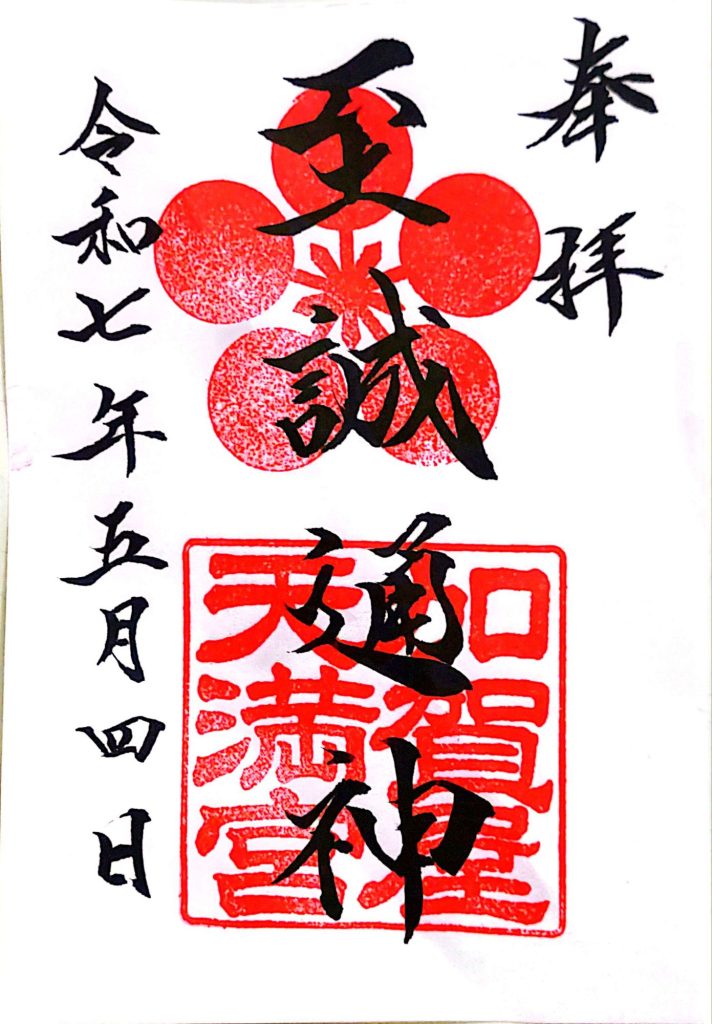 奉拝
至誠通神
加賀屋
天満宮
令和七年五月四日